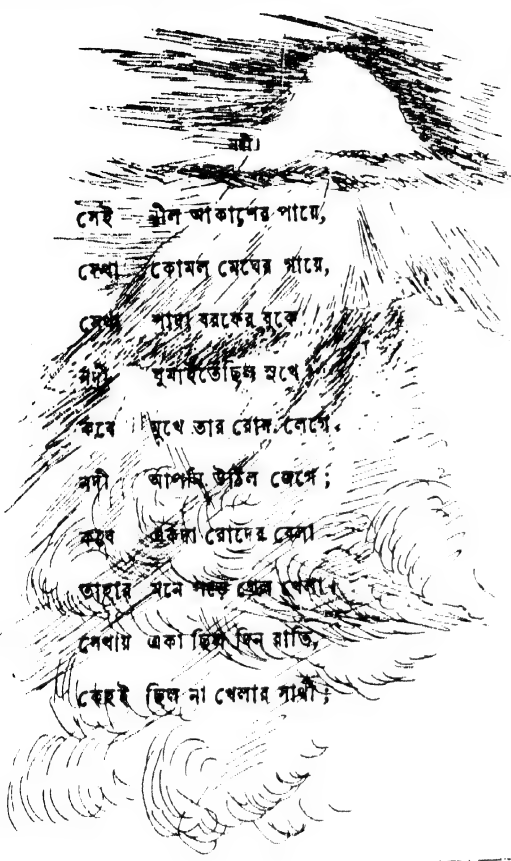 নদী।
সেই নীল আকাশের পায়ে,
সেথা কোমল মেঘের গায়ে,
সেথা সাদা বরফের বুকে
নদী ঘুমাইতেছিল সুখে।
কবে মুখে তার রোদ লেগে,
নদী আপনি উঠিল জেগে;
কবে একদা রোদের বেলা
তাহার মনে পড়ে গেল খেলা।
সেথায় একা ছিল দিন রাতি,
কেহই ছিল না খেলার সাথী;